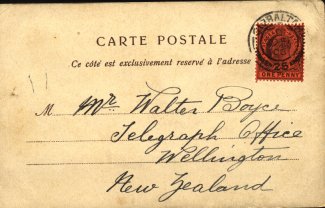 CARTE POSTALE
Ce côté est exclusivement reservé à l'adresse
25
ONE PENNY
M Mr Walter Boyce
Telegraph Office
Wellington
New Zealand